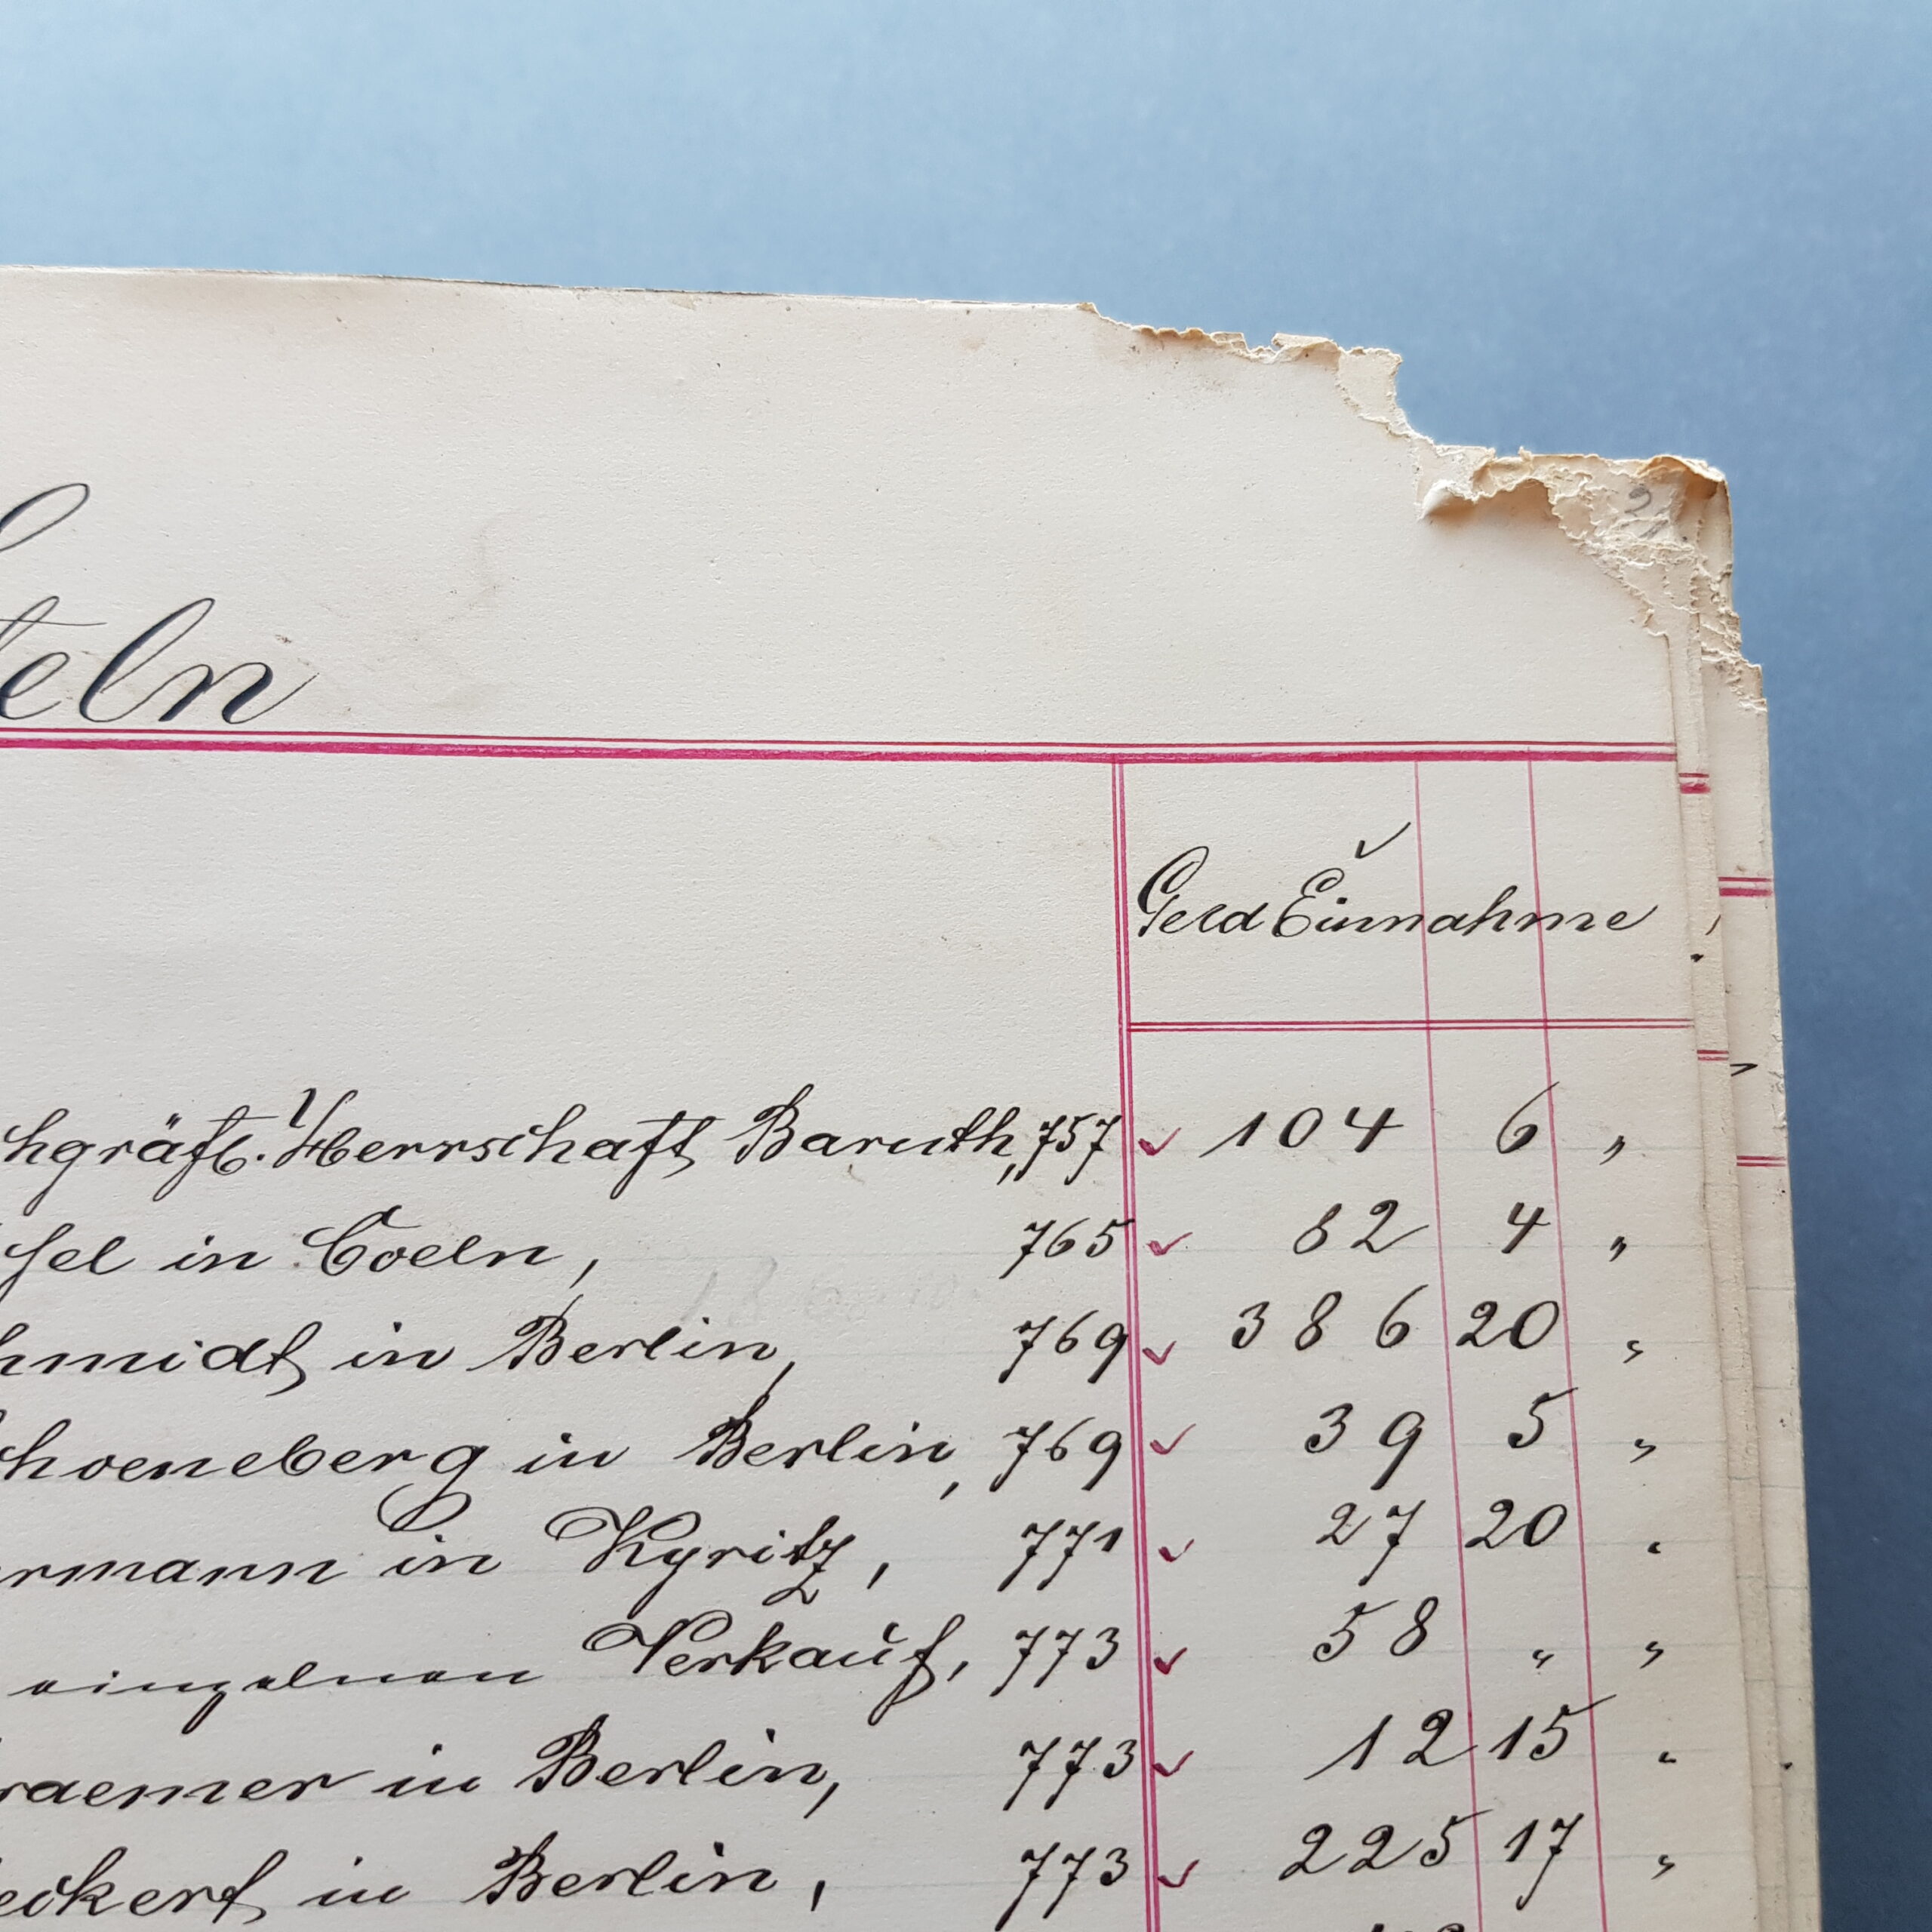 teln
Geld Einnahme
chgräfl. Herrschaft Baruth, 757 ✓ 104 6 „
sel in Coeln, 765 ✓ 82 4 „
hmidt in Berlin, 769 ✓ 386 20 „
choeneberg in Berlin, 769 ✓ 39 5 „
ermann in Kyritz, 771 ✓ 27 20 „
einzelnen Verkauf, 773 ✓ 58 „ „
raemer in Berlin, 773 ✓ 12 15 „
eckert in Berlin, 773 ✓ 225 17 „